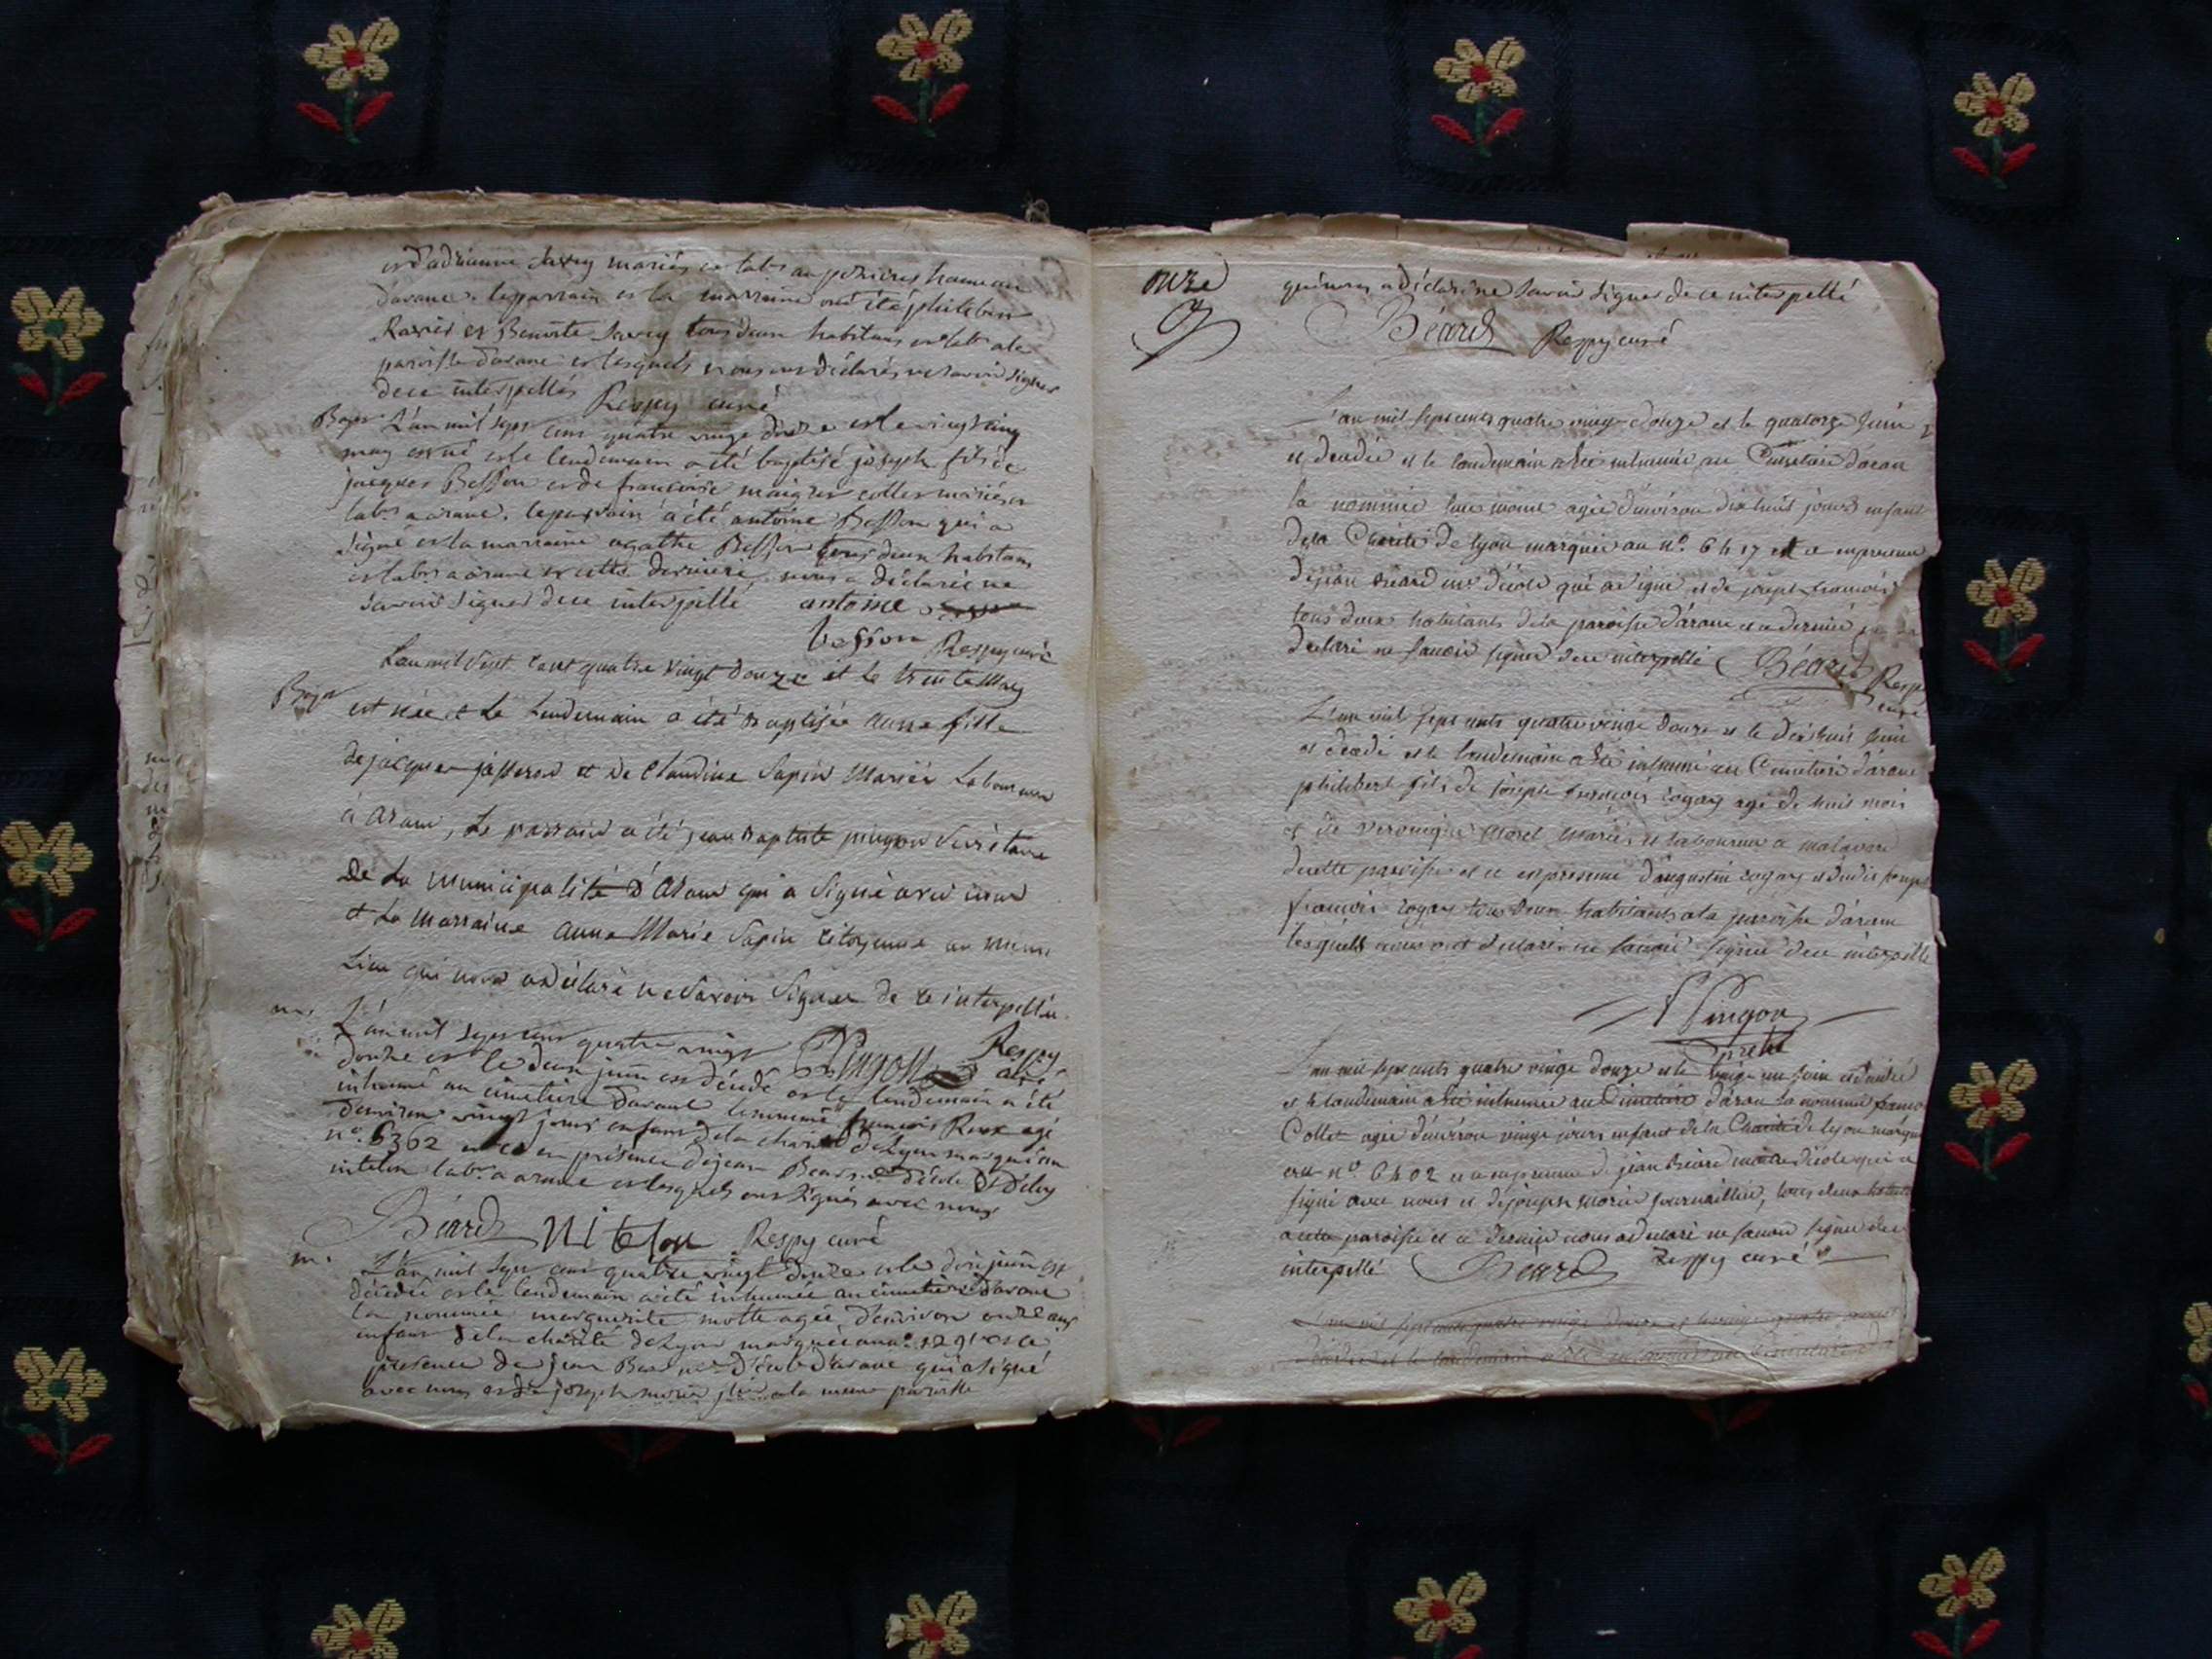 et d'adrienne savey mariés et labrs au hameau
d'arane. le parrain et la marraine ont été philibert
Ravier et Benoite savey tous deux habitans et labrs a la
paroisse d'arane et lesquels nous ont déclarés ne savoir signer
de ce interpellés Respy curé
Bapt. L'an mil sept cens quatre vingt douze est le vingt cinq
may est né et le lendemain a été baptisé joseph fils de
jacques Besson et de francoise collet mariés et
labrs a arane. le parrain a été antoine Besson qui a
signé et la marraine agathe Besson tous deux habitans
et labrs a arane et cette derniere nous a déclarée ne
savoir signer de ce interpellé antoine
besson Respy curé
Bapt L'an mil sept cent quatre vingt douze et le trente may
est née et le lendemain a été baptisée anne fille
de jacques et de Claudine Sapin Mariés Laboureurs
à arane, Le parrain a été jean baptiste pingon Secrétaire
De La Municipalité d'arane qui a signé avec nous
et La Marraine Anne Marie Sapin citoyenne au même
Lieu qui nous a déclaré ne Savoir Signer de ce interpellée
m. L'an mil sept cens quatre vingt Pingon Respy curé
douze est le deux juin est décédé et le lendemain a été
inhumé au cimetiere d'arane le nommé francois Roux agé
d'environ vingt jours enfant de la charité de Lyon marqué au
n°. 6362 et ce en présence de jean Beard me d'école d'éloy
nitelon labr. a arane et lesquels ont signés avec nous
Béard nitelon Respy curé
m. L'an mil sept cens quatre vingt douze et le dix juin est
décédée et le lendemain a été inhumée au cimetiere d'arane
la nommée marguerite motte agée d'environ onze ans
enfant de la charité de Lyon marquée au n°. 1291 et ce
présence de jean Beard me d'école d'arane qui a signé
avec nous et de joseph morier a la meme paroisse
onze
qui nous a déclaré ne savoir signer de ce interpellé
Béard Respy curé
L'an mil sept cents quatre vingt douze et le quatorze juin
est décédée et le lendemain a été inhumée au Cimetiere d'aran
la nommée agée d'environ dix huit jours enfant
de la Charité de lyon marquée au n°. 6417 et ce en presence
de jean Béard me d'école qui a signé et de joseph francois
tous deux habitants de la paroisse d'arane et ce dernier
declaré ne savoir signer de ce interpellé Béard Respy
curé
L'an mil sept cents quatre vingt douze et le dix huit juin
est decedé et le lendemain a été inhumé au Cimetiere d'arane
philibert fils de joseph francois cogay agé de huit mois
et de veronique morel mariés et laboureurs a malaval
de cette paroisse et ce en presence d'augustin cogay et dudit joseph
francois cogay tous deux habitants a la paroisse d'arane
lesquels nous ont declaré ne savoir signer de ce interpellé
Pingon
pretre
L'an mil sept cents quatre vingt douze et le vingt un juin est decedée
et le lendemain a été inhumée au Cimetiere d'aran la nommée
Collet agée d'environ vingt jours enfant de la Charité de lyon marquée
au n° 6402 et ce en presence de jean Béard maitre d'école qui a
signé avec nous et de joseph morier journaillier, tous deux
a cette paroisse et ce dernier nous a declaré ne savoir signer de ce
interpellé Béard Respy curé
L'an mil sept cents quatre vingt douze et le vingt quatre
décédée et le lendemain a été inhumée au cimetiere